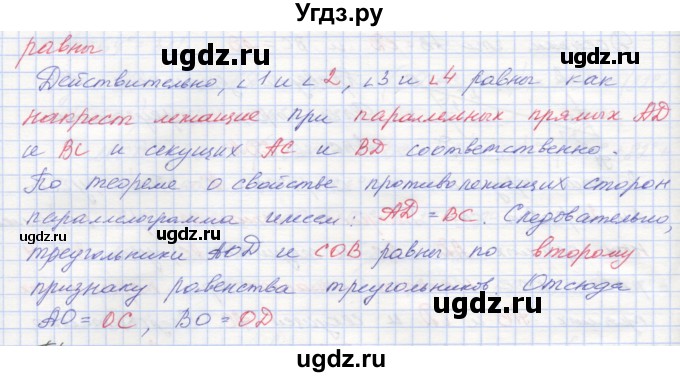 Угдз.ру
равны
ugdz.ru ugdz.ru
Действительно, ∠1 и ∠2, ∠3 и ∠4 равны как
накрест лежащие при параллельных прямых AD
и BC и секущих AC и BD соответственно.
По теореме о свойстве противолежащих сторон
параллелограмма имеем: AD = BC. Следовательно,
ugdz.ru ugdz.ru
треугольники AOD и COB равны по второму
признаку равенства треугольников. Отсюда
ugdz.ru
AO = OC, BO = OD
ugdz.ru